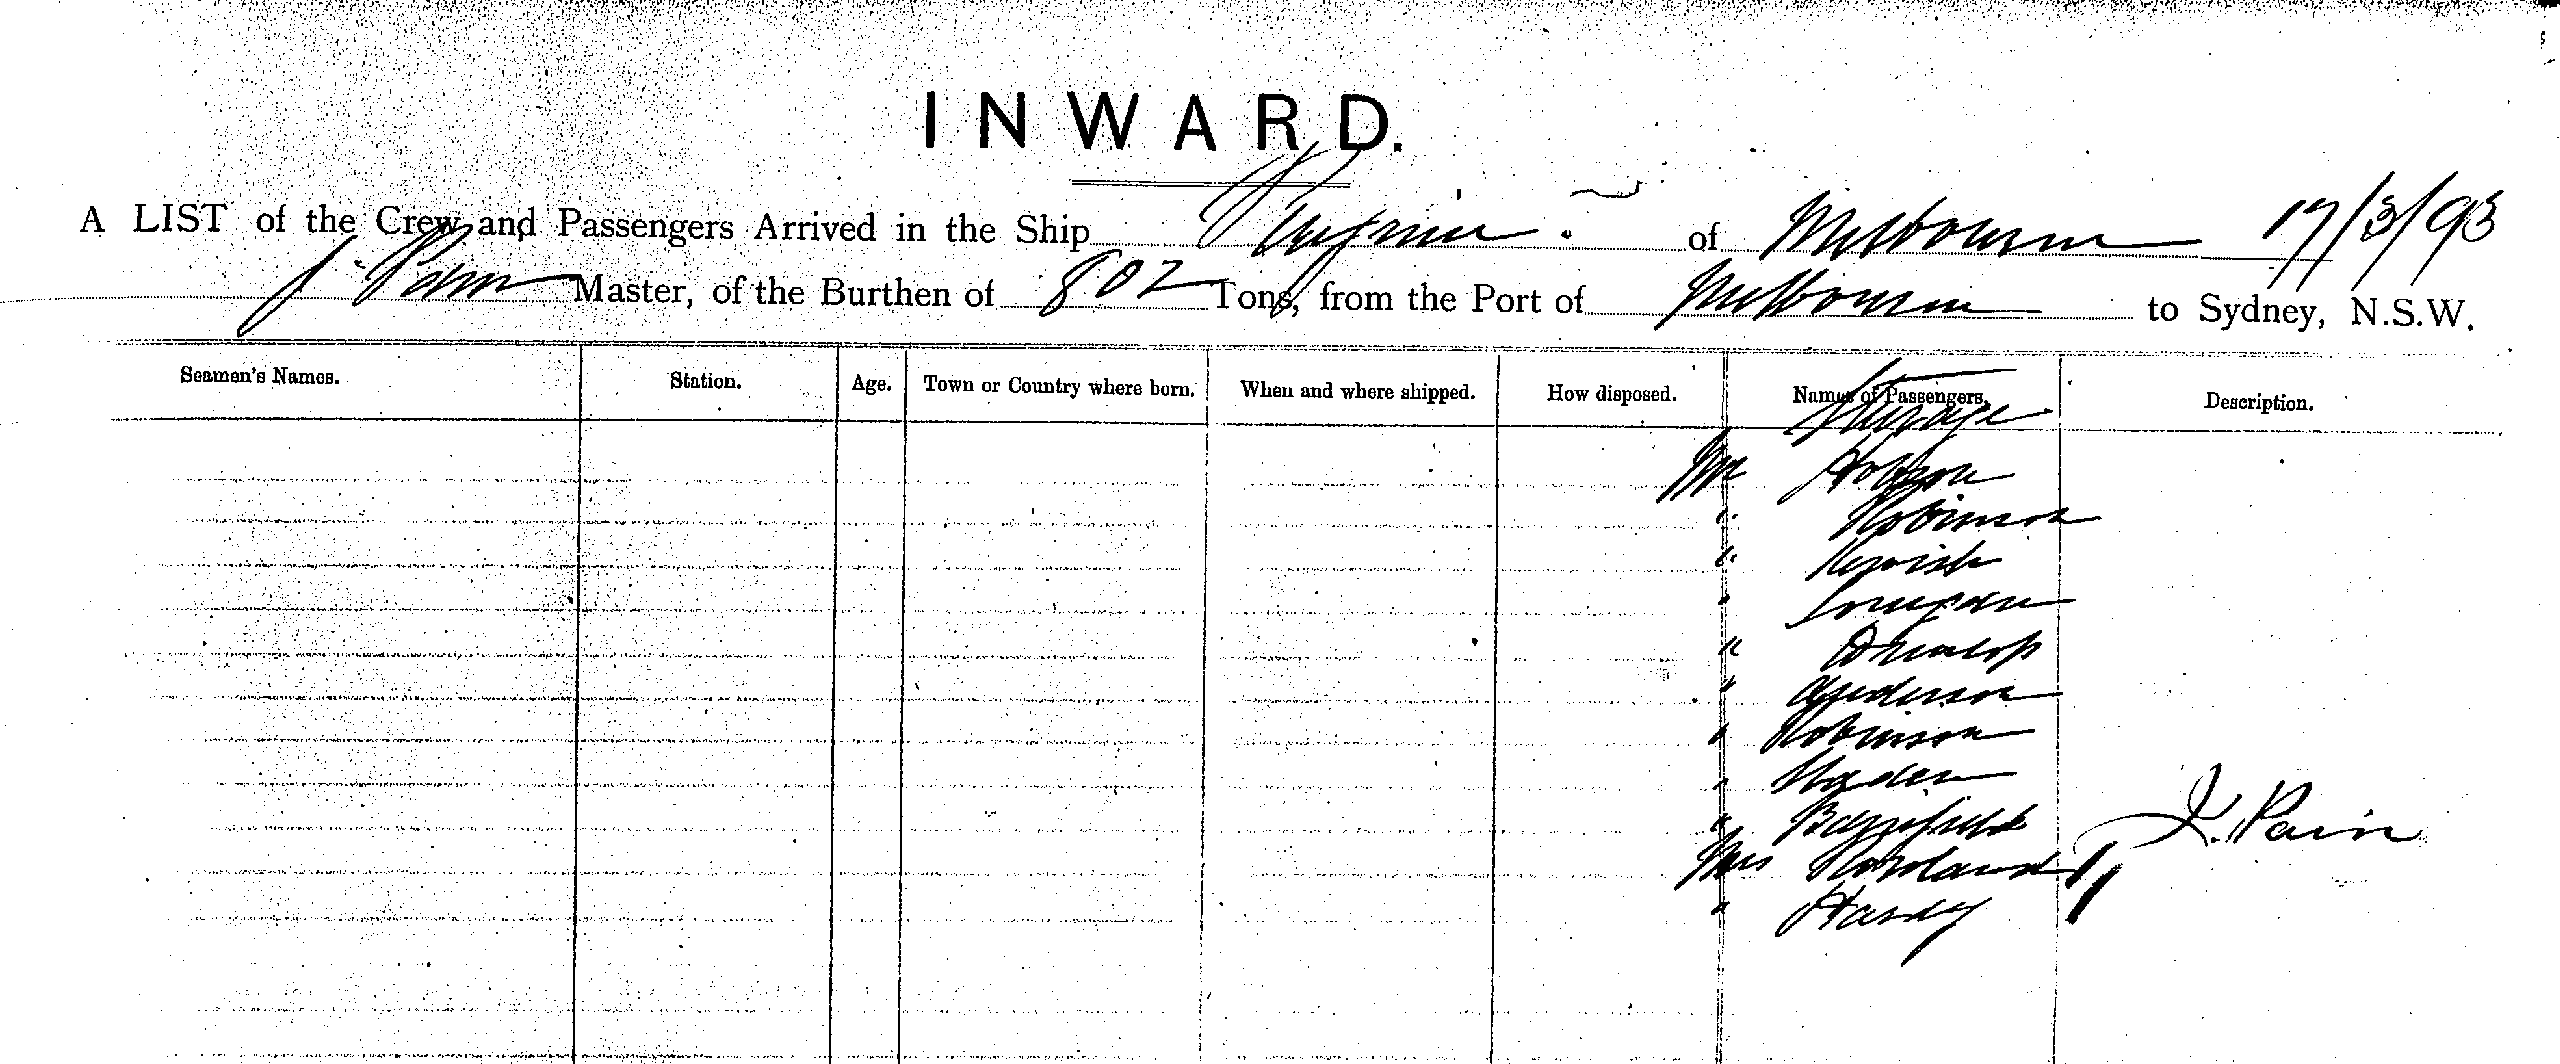 INWARD.
A LIST of the Crew and Passengers Arrived in the Ship of Melbourne 17/3/93
J. Pain Master, of the Burthen of 802 Tons, from the Port of Melbourne to Sydney, N.S.W.
Seamen's Names. Station. Age. Town or Country where born. When and where shipped. How disposed. Names of Passengers. Description.
Steerage
Mr Hobson
" Robinson
" Kewish
"
" Dunlop
" Anderson
" Robinson
"
"
Mrs Rowland
" Hardy
J. Pain